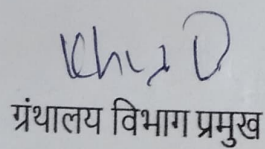 ग्रंथालय विभाग प्रमुख